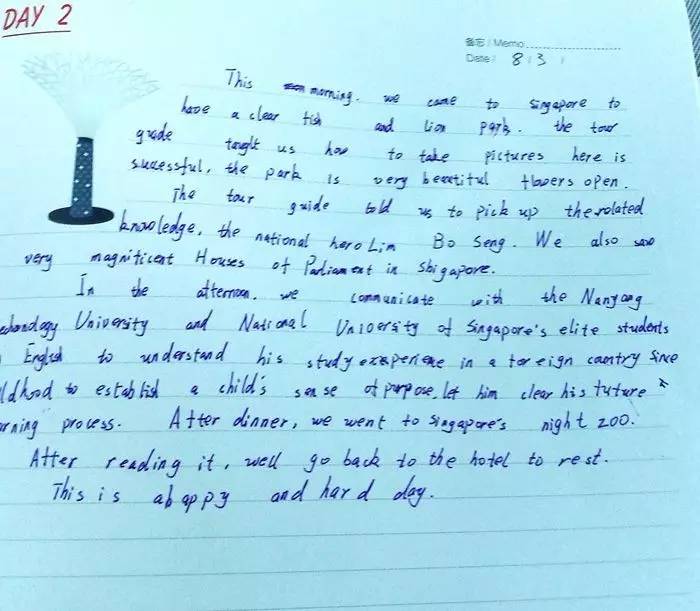 DAY 2
备忘 / Memo
Date: 8 / 3 /
This morning. we came to Singapore to
have a clear fish and lion park. the tour
guide taught us how to take pictures here is
successful, the park is very beautiful flowers open.
The tour guide told us to pick up the related
knowledge, the national hero Lim Bo Seng. We also saw
very magnificent Houses of Parliament in Sbigapore.
In the afternoon. we communicate with the Nanyang
echondogy University and National University of Singapore's elite students
English to understand his study experience in a foreign country since
ldhood to establish a child's sense of purpose, let him clear his future
rning process. After dinner, we went to Singapore's night zoo.
After reading it, well go back to the hotel to rest.
This is ahappy and hard day.